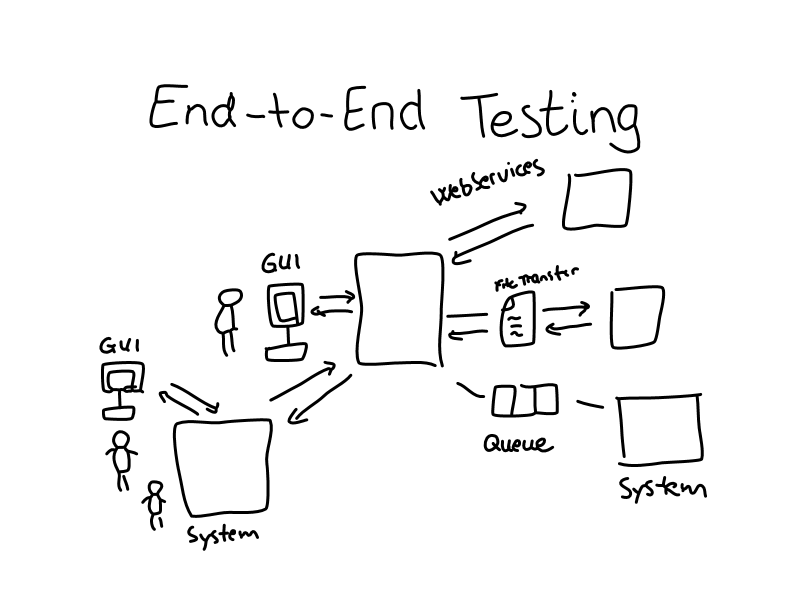 End-to-End Testing
WebServices
GUI
File Transfer
GUI
Queue
System
System